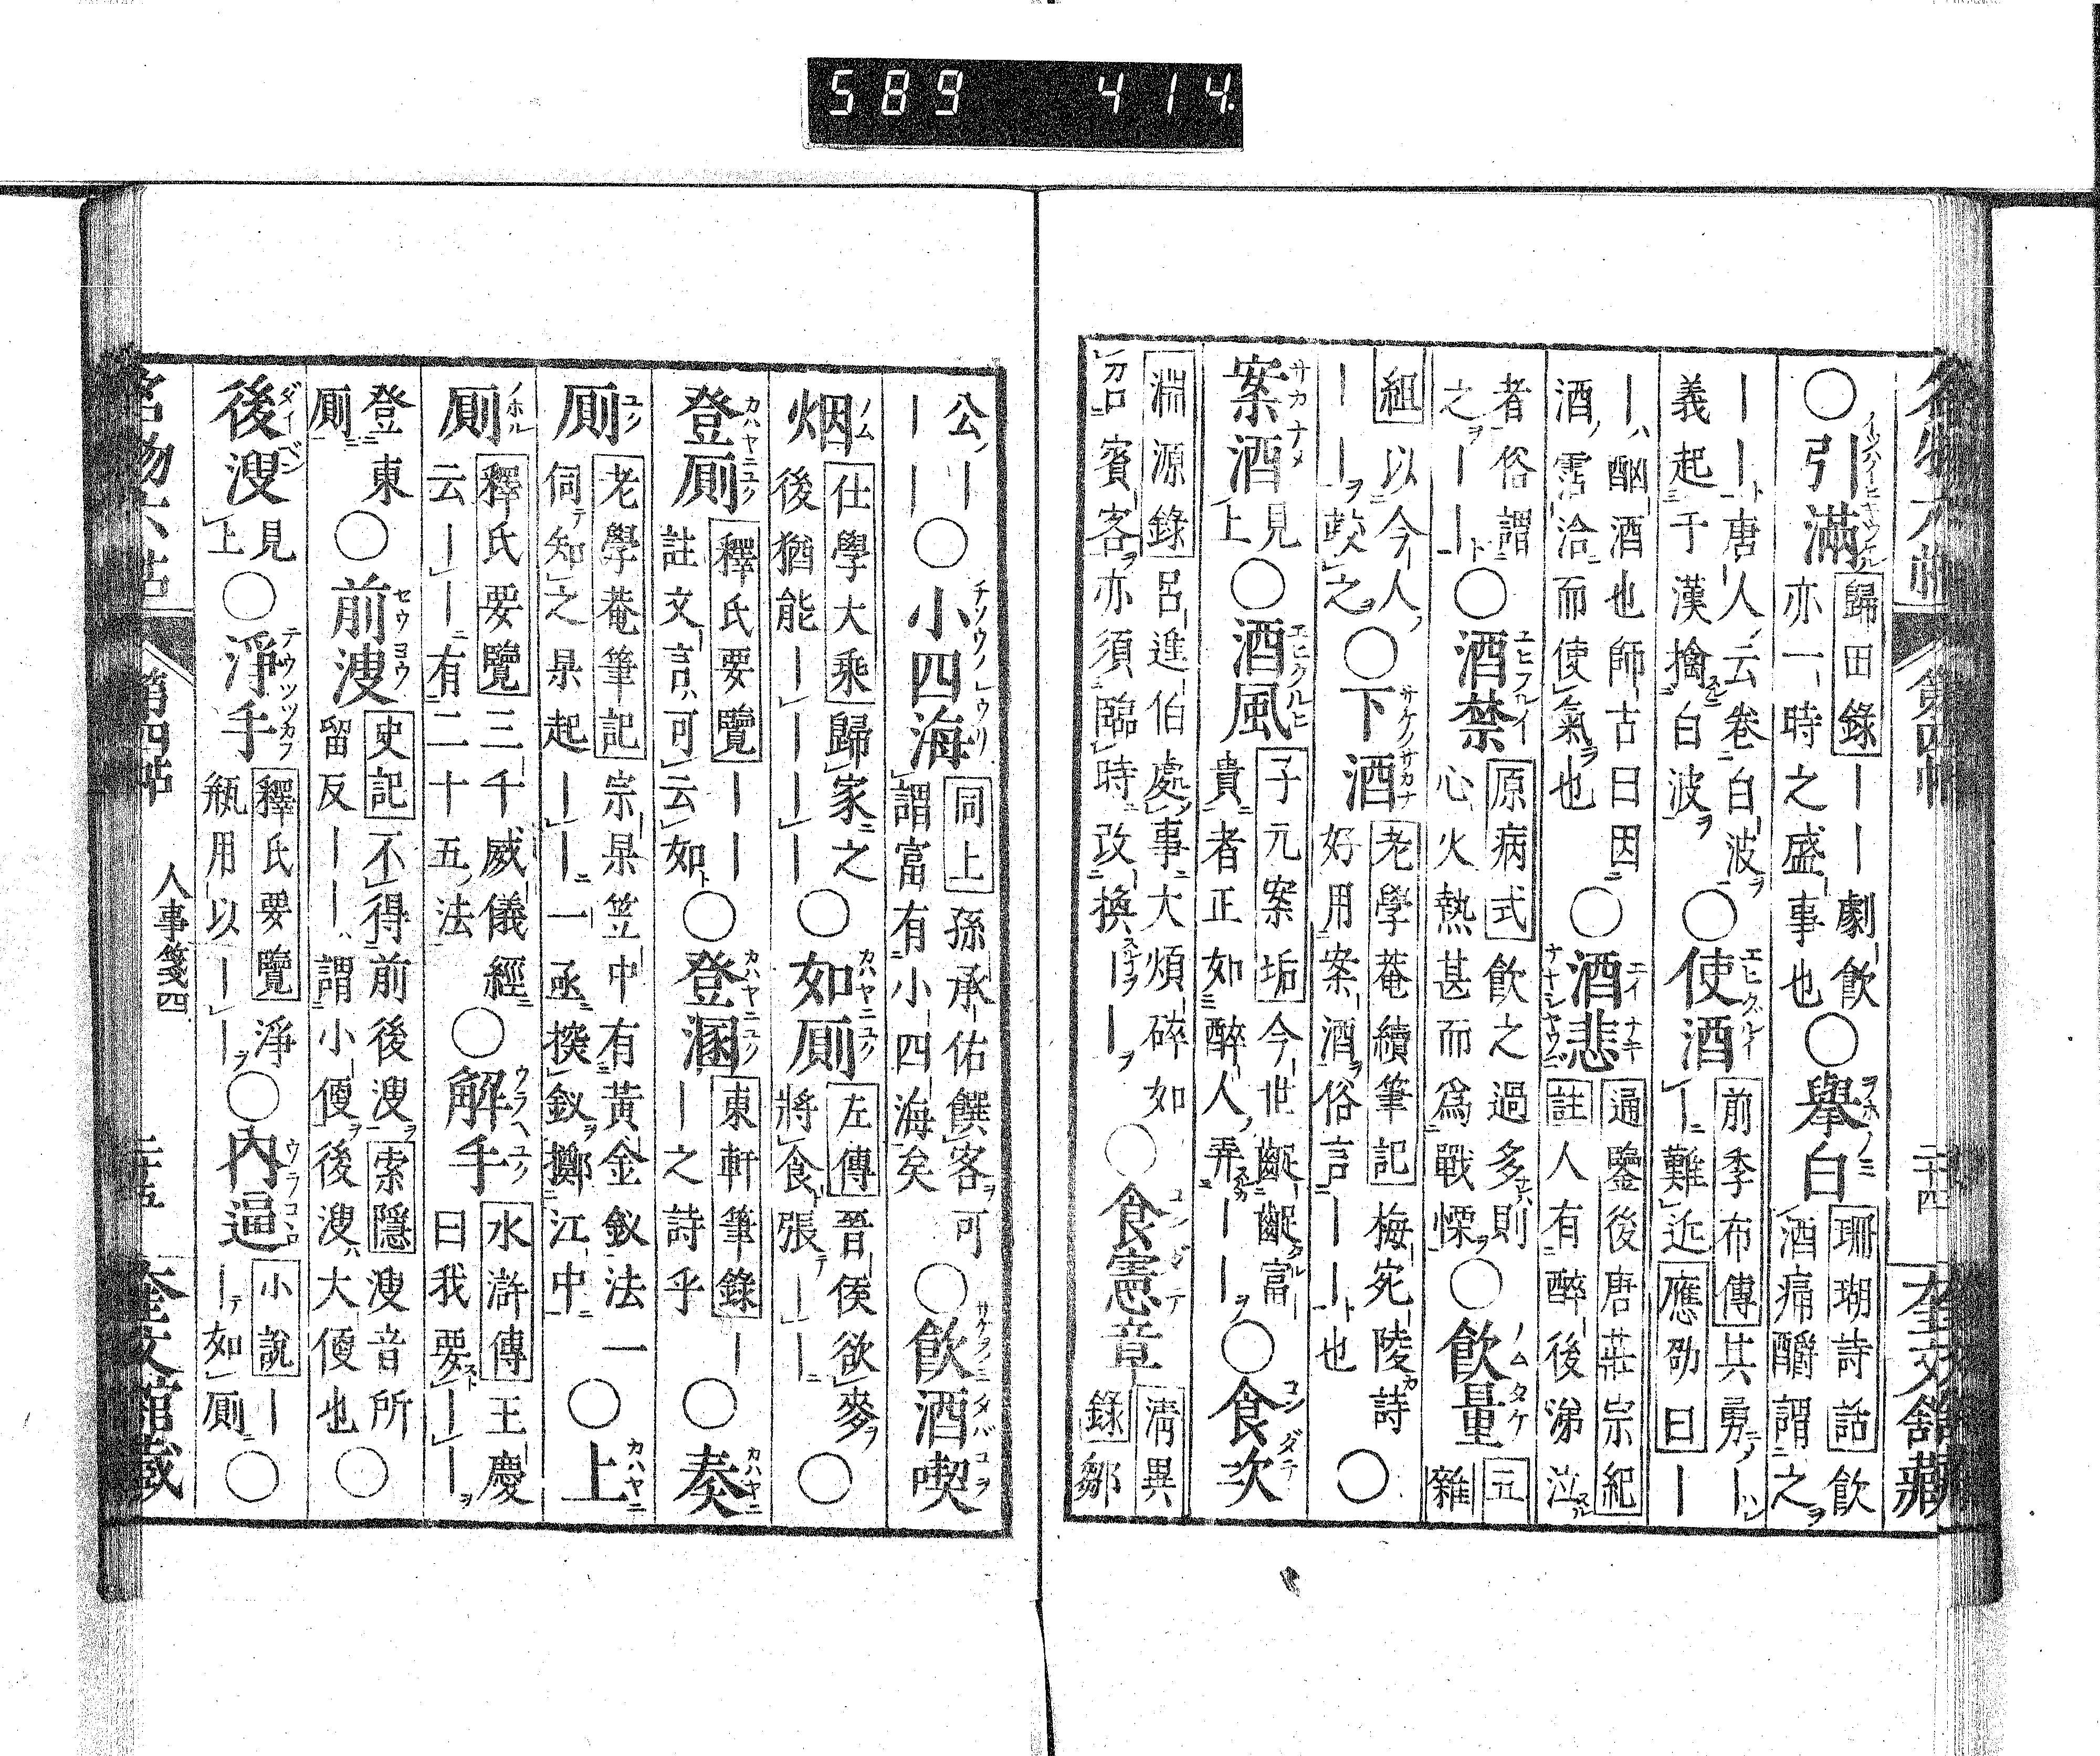 589 414
名物六帖 第四帖 二十四 奎文館藏
○引滿 歸田錄 ｜｜劇飲
亦一時之盛事也 ○擧白 珊瑚詩話 飲
酒痛釂謂之
｜｜唐人云卷白波
義起于漢擒白波 ○使酒 前季布傳 其勇｜
｜難近 應劭曰 ｜
｜酗酒也師古曰因
酒霑洽而使氣也 ○酒悲 通鑒後唐莊宗紀
註 人有醉後涕泣
者俗謂
之｜｜ ○酒禁 原病式 飲之過多則
心火熱甚而爲戰慄 ○飲量 五
雜
組 以今人
｜｜｜歃之 ○下酒 老學菴續筆記 梅宛陵詩
好用案酒俗言｜｜也 ○
案酒 見上 ○酒風 子元案垢 今世齷齪富
貴者正如醉人弄｜｜ ○食次
淵源錄 呂進伯處事大煩碎如
召賓客亦須臨時改換｜｜ ○食憲章 淸異
錄 鄒
公｜
｜｜ ○小四海 同上 孫承佑饌客可
謂富有小四海矣 ○飲酒喫
烟 仕學大乘 歸家之
後猶能｜｜｜｜ ○如厠 左傳 晉侯欲麥
將食張｜｜ ○
登厠 釋氏要覽 ｜｜
註文言可云如 ○登溷 東軒筆錄 ｜
｜之詩乎 ○奏
厠 老學菴筆記 宗杲笠中有黃金釵法一
伺知之杲起｜｜一亟揬釵擲江中 ○上
厠 釋氏要覽 三千威儀經
云｜｜有二十五法 ○解手 水滸傳 王慶
曰我要｜｜
登東
厠 ○前溲 史記 不得前後溲 索隱 溲音所
留反｜｜謂小便後溲大便也 ○
後溲 見上 ○淨手 釋氏要覽 淨
瓶用以｜｜ ○內逼 小說 ｜
｜如厠 ○
名物六帖 第四帖 人事箋四 二十五 奎文館藏